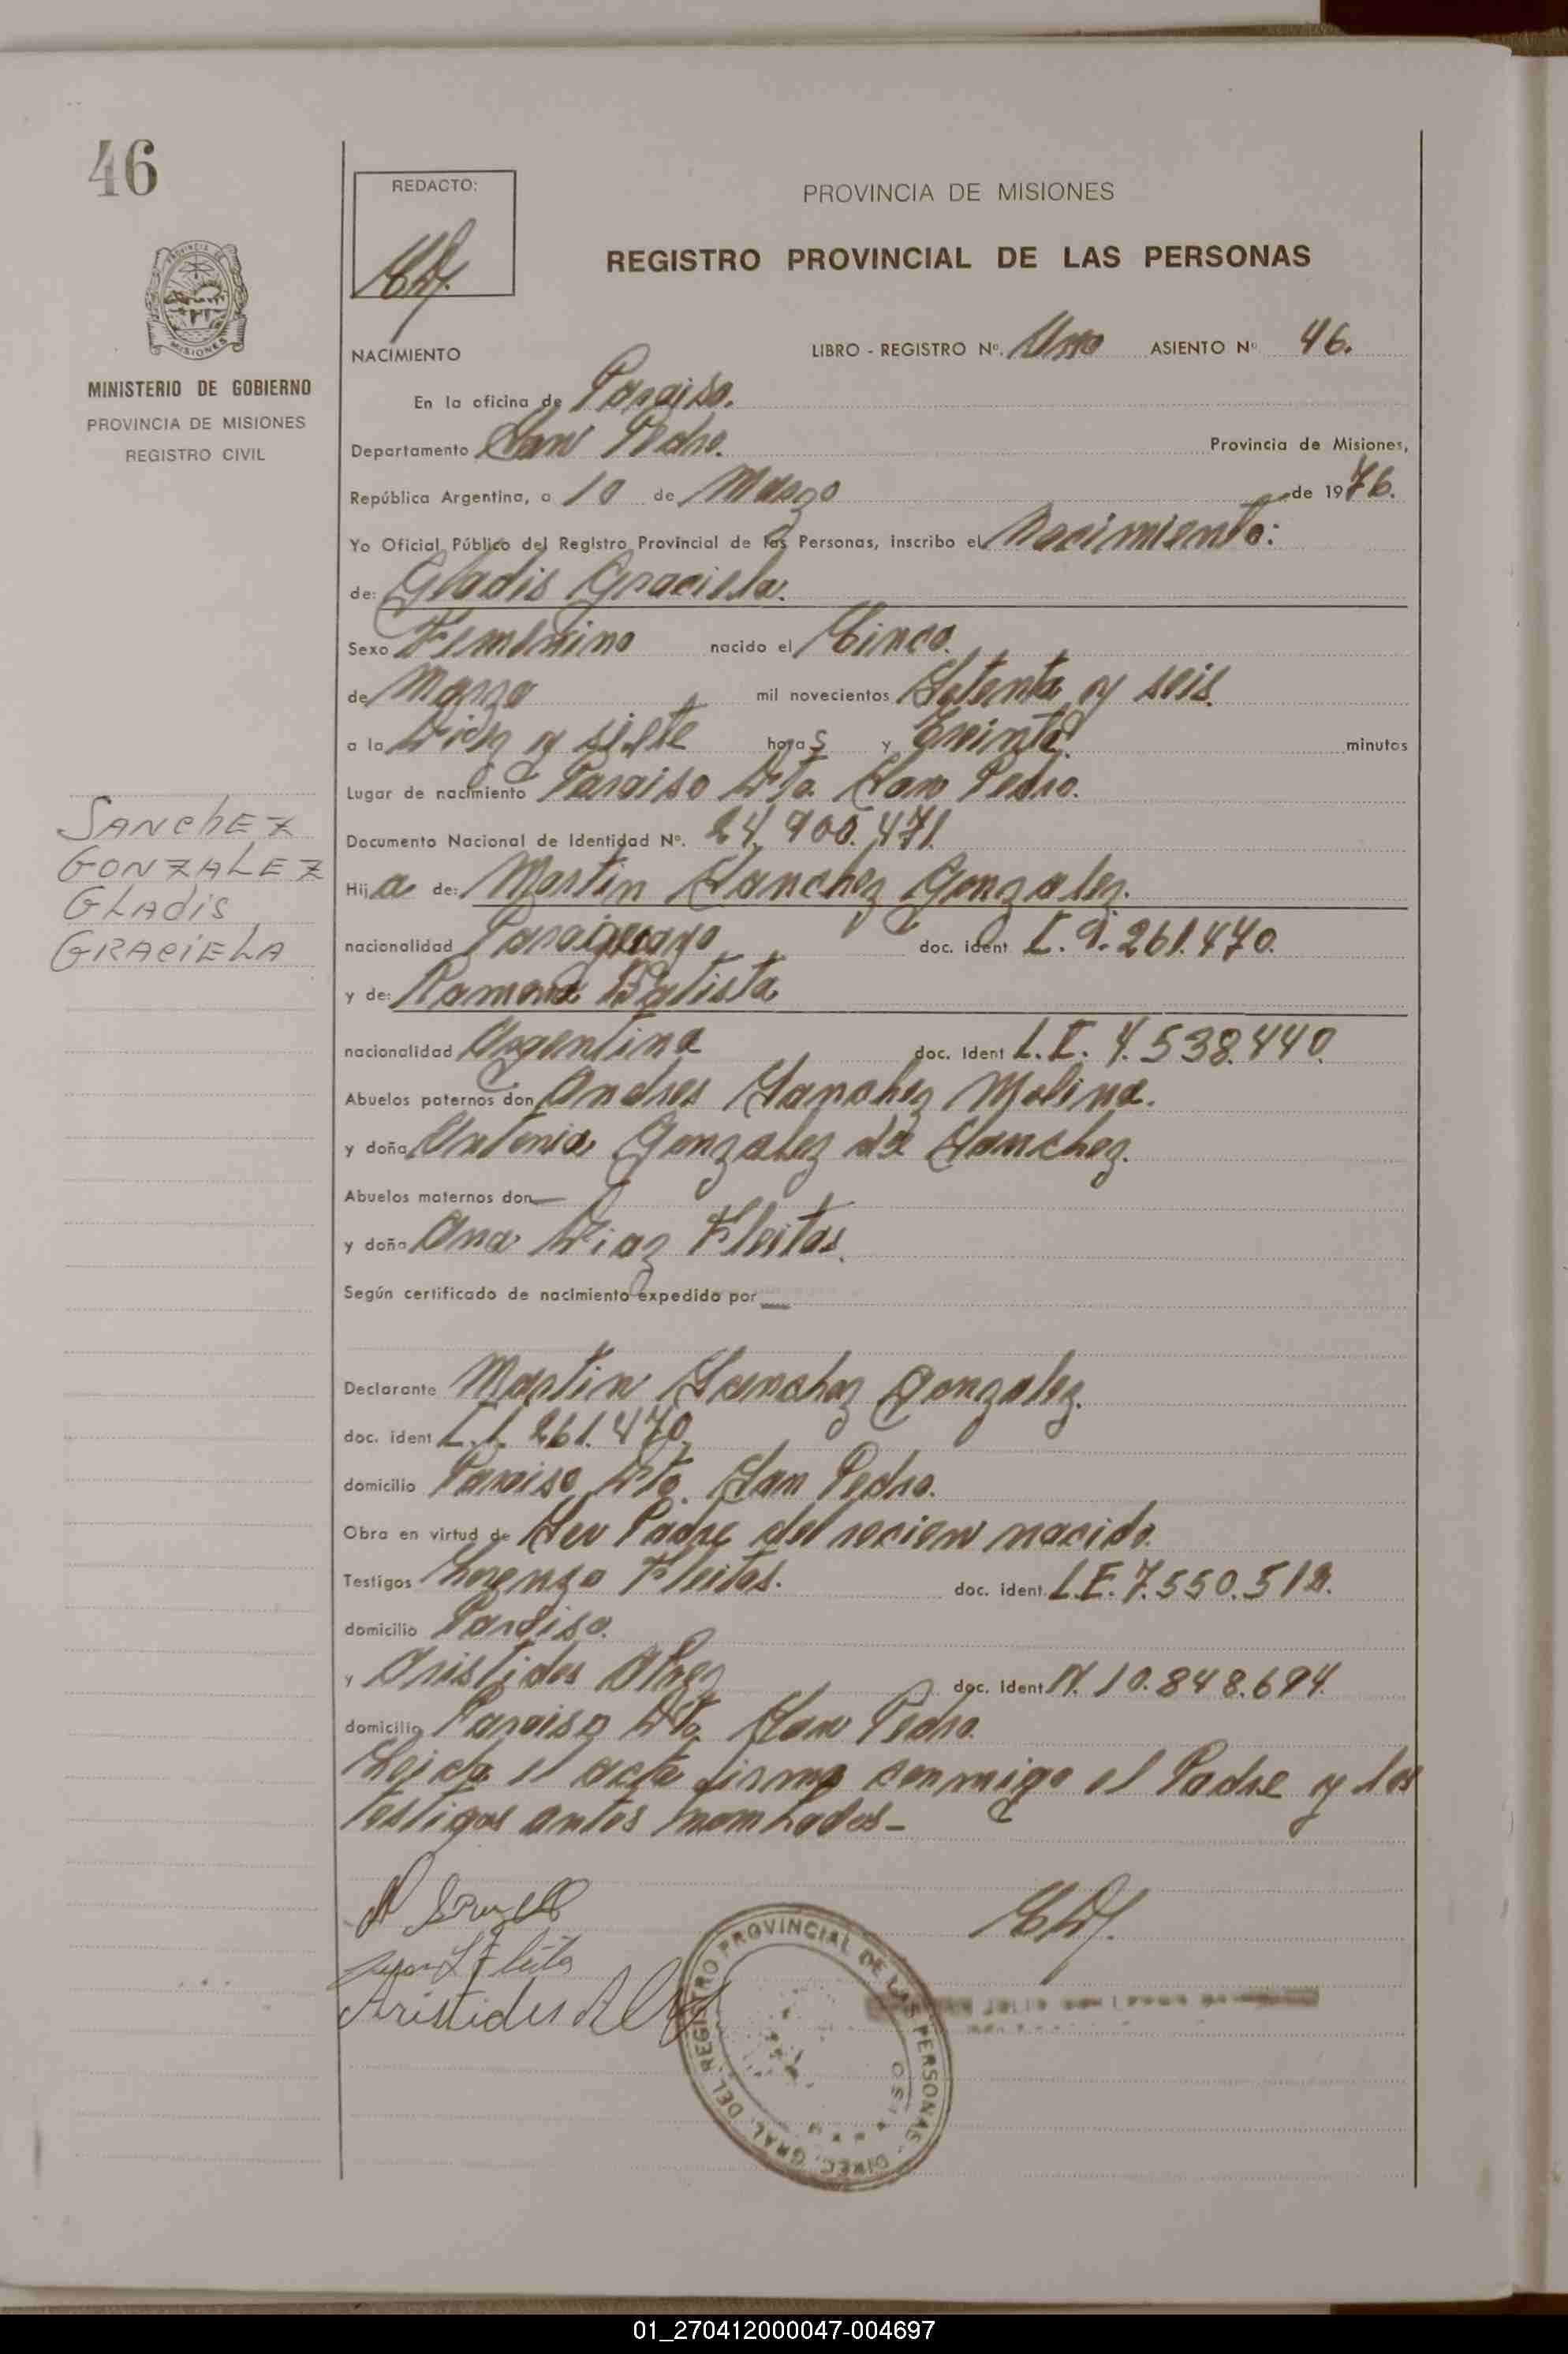 46
REDACTO:
PROVINCIA DE MISIONES
REGISTRO PROVINCIAL DE LAS PERSONAS
MISIONES
MINISTERIO DE GOBIERNO
PROVINCIA DE MISIONES
REGISTRO CIVIL
NACIMIENTO
LIBRO - REGISTRO Nº. Uno ASIENTO Nº 46.
En la oficina de Paraiso.
Departamento San Pedro. Provincia de Misiones,
República Argentina, a 10 de Marzo de 1976.
Yo Oficial Público del Registro Provincial de las Personas, inscribo el Nacimiento:
de: Gladis Graciela.
Sexo Femenino nacido el Cinco.
de Marzo mil novecientos Setenta y seis.
a la Diez y siete horas y Treinta. minutos
Lugar de nacimiento Paraiso Dto. San Pedro.
SANchEZ
GONZALEZ
GLAdiS
GRACiELA
Documento Nacional de Identidad Nº. 24.900.471.
Hija de: Martin Sanchez Gonzalez.
nacionalidad Paraguayo doc. ident 261.470.
y de: Ramona Batista
nacionalidad Argentina doc. Ident 4.538.440.
Abuelos paternos don Andres Sanchez Molina.
y doña Antonia Gonzalez de Sanchez.
Abuelos maternos don —
y doña Ana Diaz Fleitas.
Según certificado de nacimiento expedido por —
Declarante Martin Sanchez Gonzalez.
doc. ident 261.470.
domicilio Paraiso Dto. San Pedro.
Obra en virtud de Ser Padre del recien nacido.
Testigos Lorenzo Fleitas. doc. ident. L.E. 7.550.512.
domicilio Paraiso.
y Aristides Alvez doc. ident 10.848.694.
domicilio Paraiso Dto San Pedro.
Leida el acta firma conmigo el Padre y los
testigos antes nombrados-
Aristides
DIREC. GRAL. DEL REGISTRO PROVINCIAL DE LAS PERSONAS
01_270412000047-004697